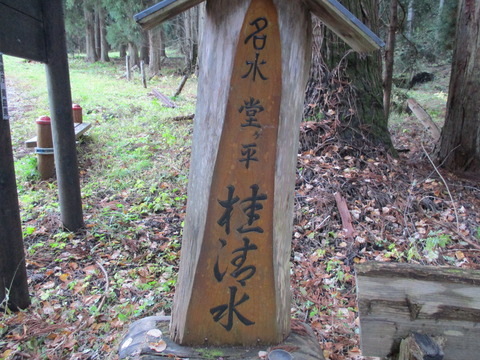 名水
堂ヶ平
桂清水